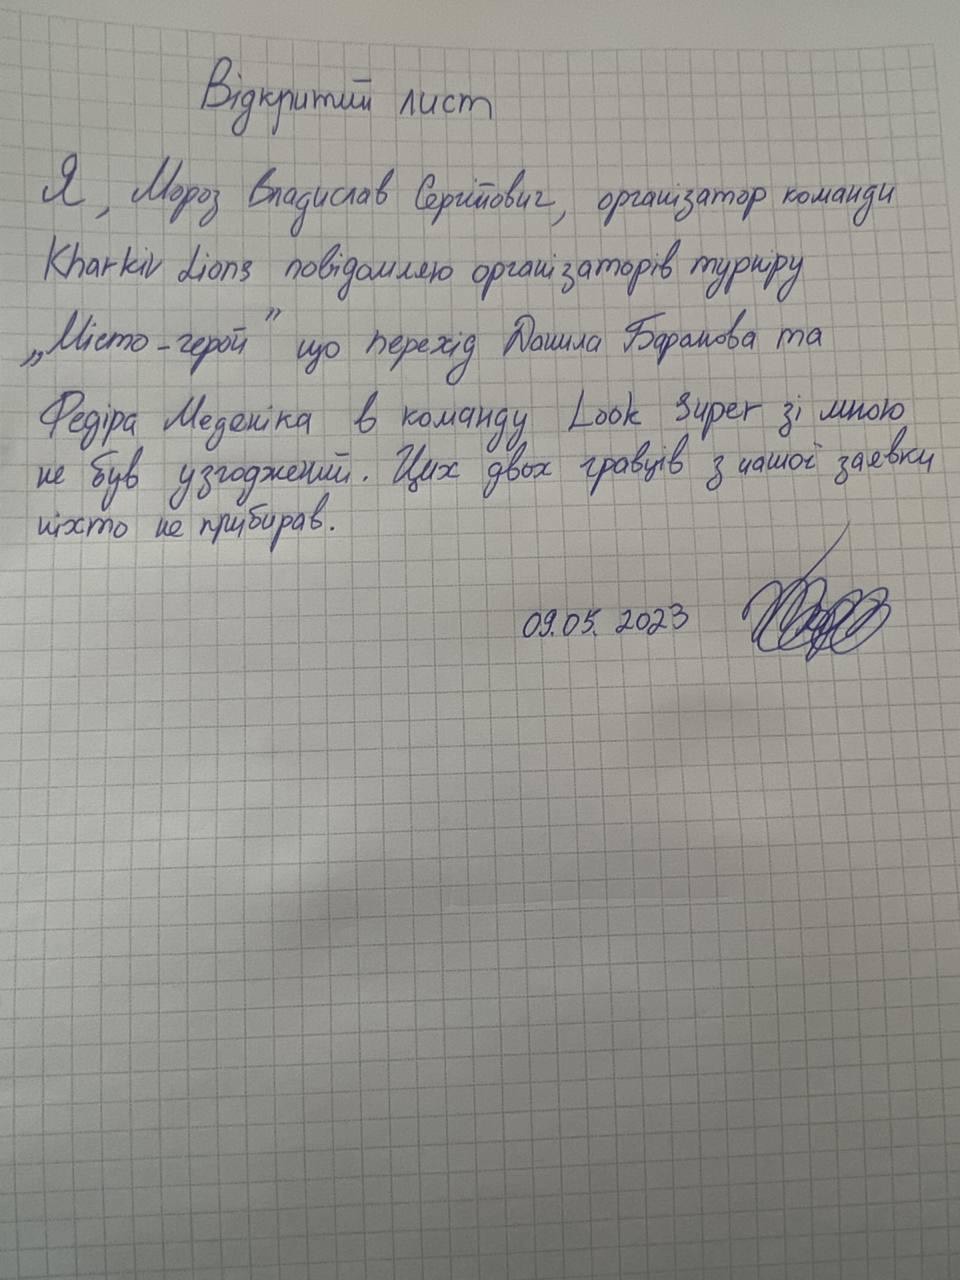 Відкритий лист
Я, Мороз Владислав Сергійович, організатор команди
Kharkiv Lions повідомляю організаторів турніру
„Місто-герой" що перехід Данила Баранова та
Федіра Меденіка в команду Look Super зі мною
не був узгоджений. Цих двох гравців з нашої заявки
ніхто не прибирав.
09.05.2023